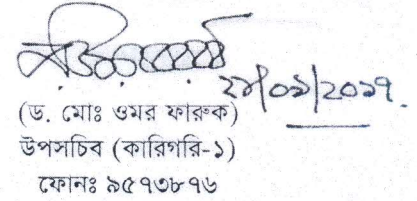 ২৮/০৯/২০১৭.
(ড. মোঃ ওমর ফারুক)
উপসচিব (কারিগরি-১)
ফোনঃ ৯৫৭৩৮৭৬